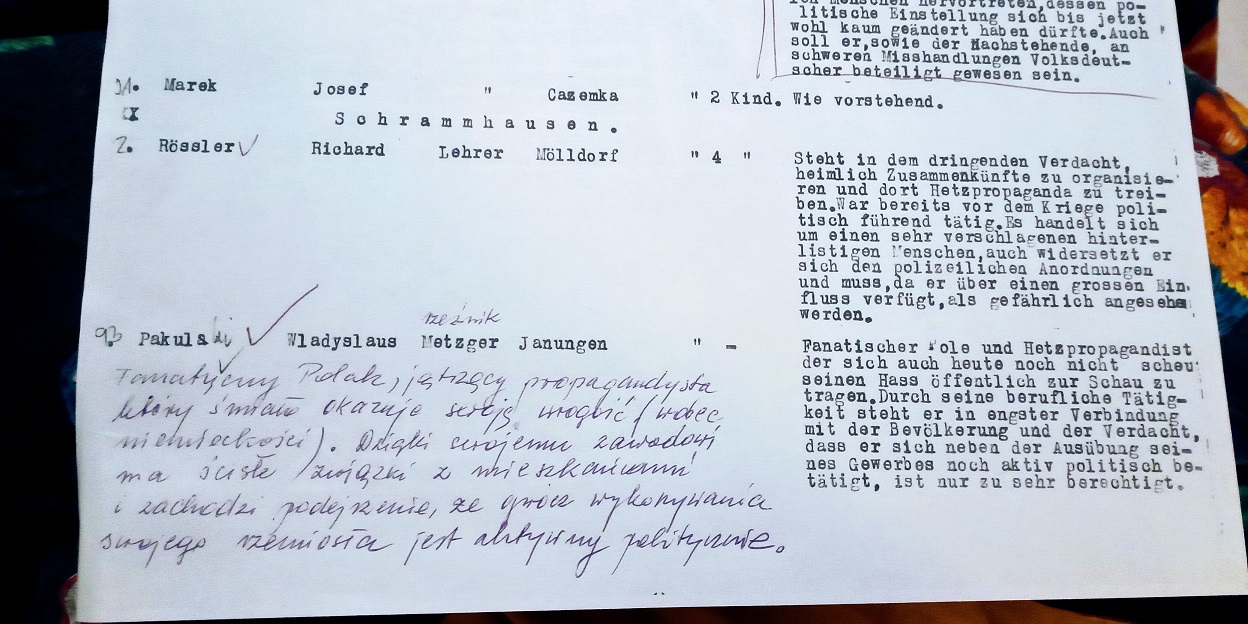 Menschen hervortreten,dessen po-
litische Einstellung sich bis jetzt
wohl kaum geändert haben dürfte.Auch
soll er,sowie der Nachstehende, an
schweren Misshandlungen Volksdeut-
scher beteiligt gewesen sein.
Marek Josef " Cazemka " 2 Kind. Wie vorstehend.
Schrammhausen.
2. Rössler Richard Lehrer Mölldorf " 4 "
Steht in dem dringenden Verdacht,
heimlich Zusammenkünfte zu organisie-
ren und dort Hetzpropaganda zu trei-
ben.War bereits vor dem Kriege poli-
tisch führend tätig.Es handelt sich
um einen sehr verschlagenen hinter-
listigen Menschen,auch widersetzt er
sich den polizeilichen Anordnungen
und muss,da er über einen grossen Ein-
fluss verfügt,als gefährlich angesehe
werden.
rzeźnik
93 Pakulski Wladyslaus Metzger Janungen " -
Fanatischer Pole und Hetzpropagandist
der sich auch heute noch nicht scheu
seinen Hass öffentlich zur Schau zu
tragen.Durch seine berufliche Tätig-
keit steht er in engster Verbindung
mit der Bevölkerung und der Verdacht,
dass er sich neben der Ausübung sei-
nes Gewerbes noch aktiv politisch be-
tätigt, ist nur zu sehr berechtigt.
Fanatyczny Polak, jątrzący propagandysta
który śmiało okazuje swoją wrogość (wobec
niemieckości). Dzięki swojemu zawodowi
ma ścisłe związki z mieszkańcami
i zachodzi podejrzenie, że oprócz wykonywania
swojego rzemiosła jest aktywny politycznie.